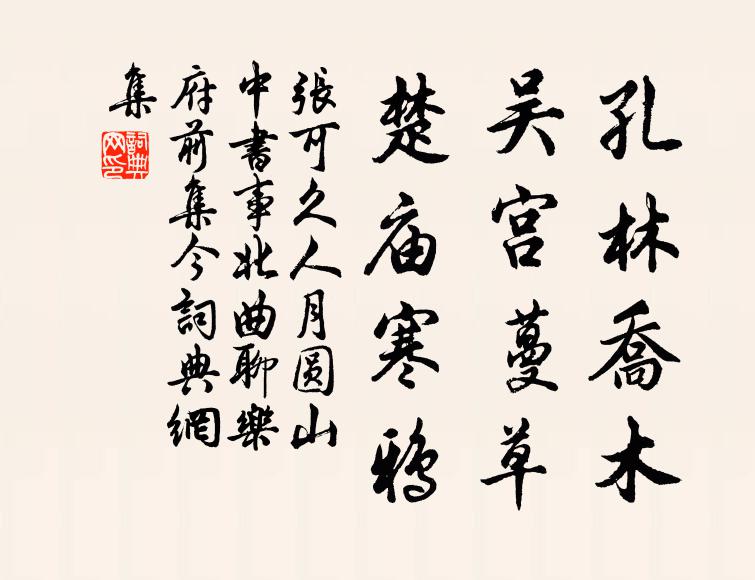 孔林喬木
吴宫蔓草
楚庙寒鴉
張可久人月圆山
中書事北曲聊樂
府前集今詞典網
集
詞典網印